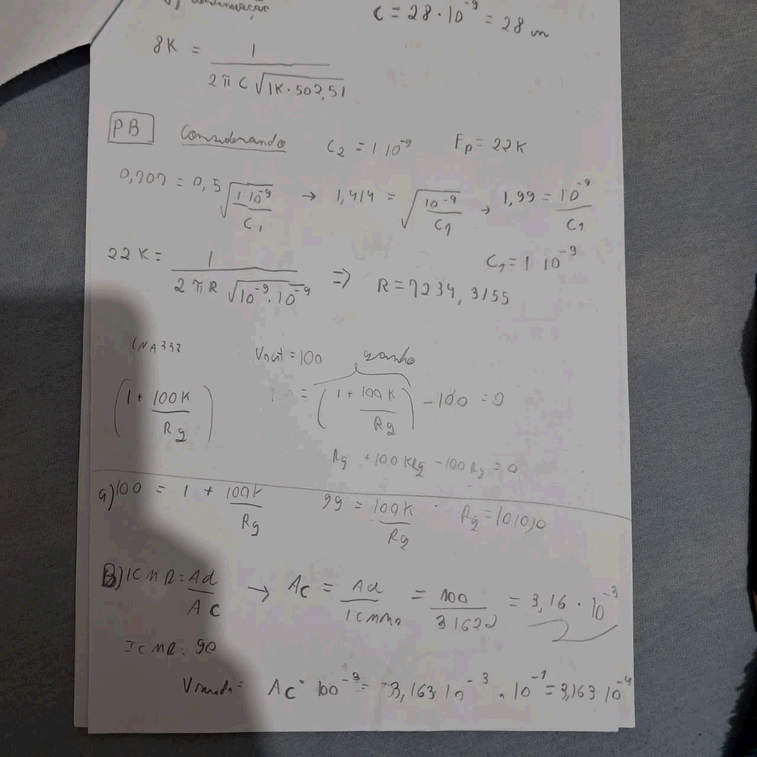 C = 28 · 10⁻⁹ = 28 m
8K = 1 / (2πC√(1K·502,51))
PB Considerando C₂ = 1 10⁻⁹ Fp = 22K
0,707 = 0,5 √(1 10⁻⁹ / C₁) → 1,414 = √(10⁻⁹ / C₁) → 1,99 = 10⁻⁹ / C₁
C₁ = 1 10⁻⁹
22K = 1 / (2πR √(10⁻⁹·10⁻⁹)) ⇒ R = 7234,3155
INA332 Vout = 100 ganho
(1 + 100K / Rg) = (1 + 100K / Rg) - 100 = 0
Rg + 100KRg - 100Rg = 0
a) 100 = 1 + 100K / Rg 99 = 100K / Rg Rg = 1010,0
B) ICMR = Ad / Ac → Ac = Ad / ICMR = 100 / 31622 = 3,16 · 10⁻³
ICMR = 90
= Ac · 100⁻³ = 3,163 10⁻³ · 10⁻¹ = 3,163 10⁻⁴